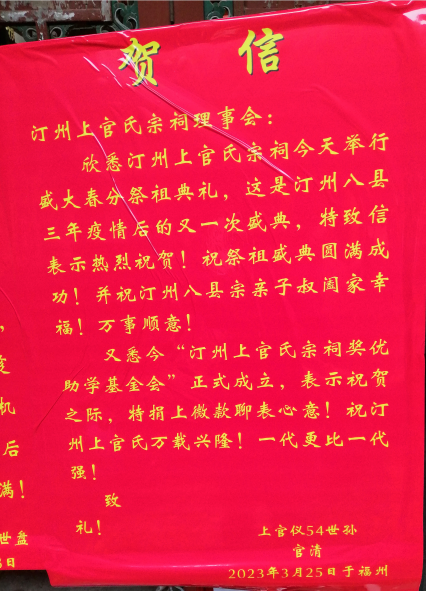 贺信
汀州上官氏宗祠理事会：
欣悉汀州上官氏宗祠今天举行
盛大春分祭祖典礼，这是汀州八县
三年疫情后的又一次盛典，特致信
表示热烈祝贺！祝祭祖盛典圆满成
功！并祝汀州八县宗亲子叔阖家幸
福！万事顺意！
又悉今“汀州上官氏宗祠奖优
助学基金会”正式成立，表示祝贺
之际，特捐上微款聊表心意！祝汀
州上官氏万载兴隆！一代更比一代
强！
致
礼！
上官仪54世孙
官清
2023年3月25日于福州
机
后
满！
世盘
日